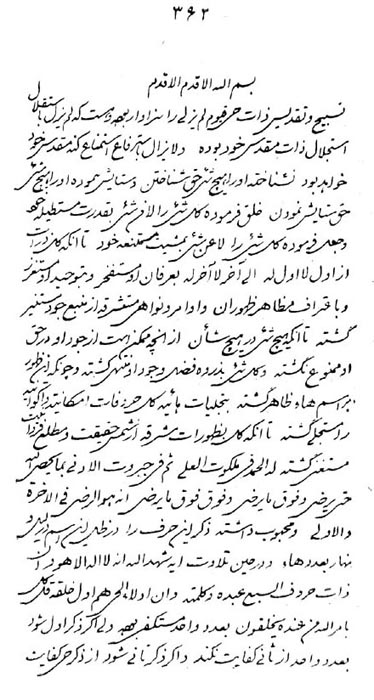 ۳۶۲
بسم الله الاقدم الاقدم
تسبیح و تقدیس ذات حی قیوم لم یزلی را سزاوار بوده و هست که لم یزل باستقلال
استجلال ذات مقدس خود بوده و لایزال باسترفاع استمناع کنه مقدس خود
خواهد بود نشناخته او را هیچ شئ حق شناختن و ستایش ننموده او را هیچ شئ
حق ستایش نمودن خلق فرموده کل شئ را لا من شئ بقدرت مستطیله خود
و جعل فرموده کل شئ را لا عن شئ بمشیت ممتنعه خود تا آنکه کل ذرات
از اول لا اول له الی آخر لا آخر له بعرفان او متفجر و بتوحید او متعزز
و باعتراف مظاهر ظهور ان و اوامر و نواهی مشرقه از منبع جود مستنیر
گشته تا آنکه هیچ شئ در هیچ شأن از آنچه ممکنست از جود او در حق
او ممنوع نگشته و کل شئ بذروه فضل وجود او منتهی گشته و چونکه این ظهور
باسم هاء ظاهر گشته بتجلیات هائیه کل حرف امکانیه و اکوانیه
را متجلی گشته تا آنکه کل بظهورات مشرقه از شمس حقیقت و مطلع
مستغنی گشته له الحمد فی ملکوت العلی ثم فی جبروت الادنی بما یحصی
حتی یرضی و فوق ما یرضی و فوق فوق ما یرضی انه هو الرضی فی الاخرة
والاولی و محبوب داشته ذکر این حرف را در ظل این اسم در لیل و
نهار بعدد هاء و در حین تلاوت ایه شهد الله انه لا اله الا هو و ان
ذات حروف السبع عبده و کلمته و ان ادلاء الحی هم اول خلقه قل کل
بامر الله من عنده یخلقون بعدد واحد مستکفی بوده ولی اگر ذکر اول شود
بعدد واحد از ثانی کفایت نکند و اگر ذکر ثانی شود از ذکر حی کفایت